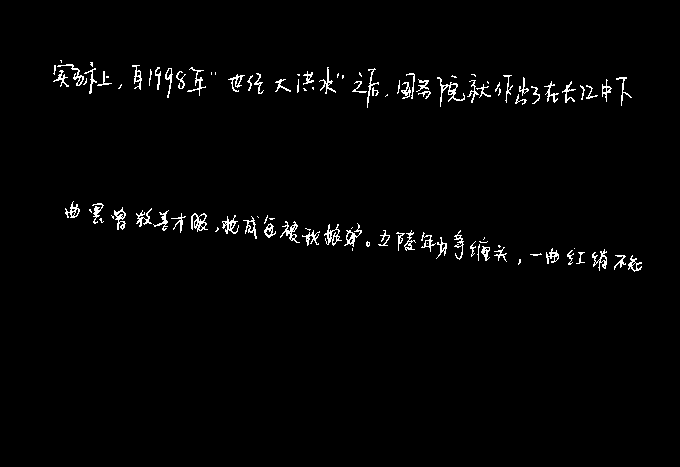 实际上，自1998年“世纪大洪水”之后，国务院就作出了在长江中下
曲罢曾教善才服，妆成每被秋娘妒。五陵年少争缠头，一曲红绡不知